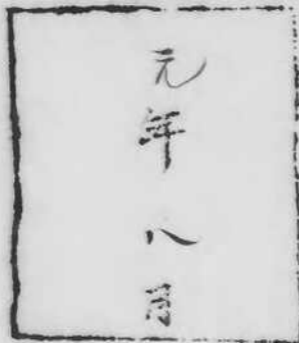 元年八月